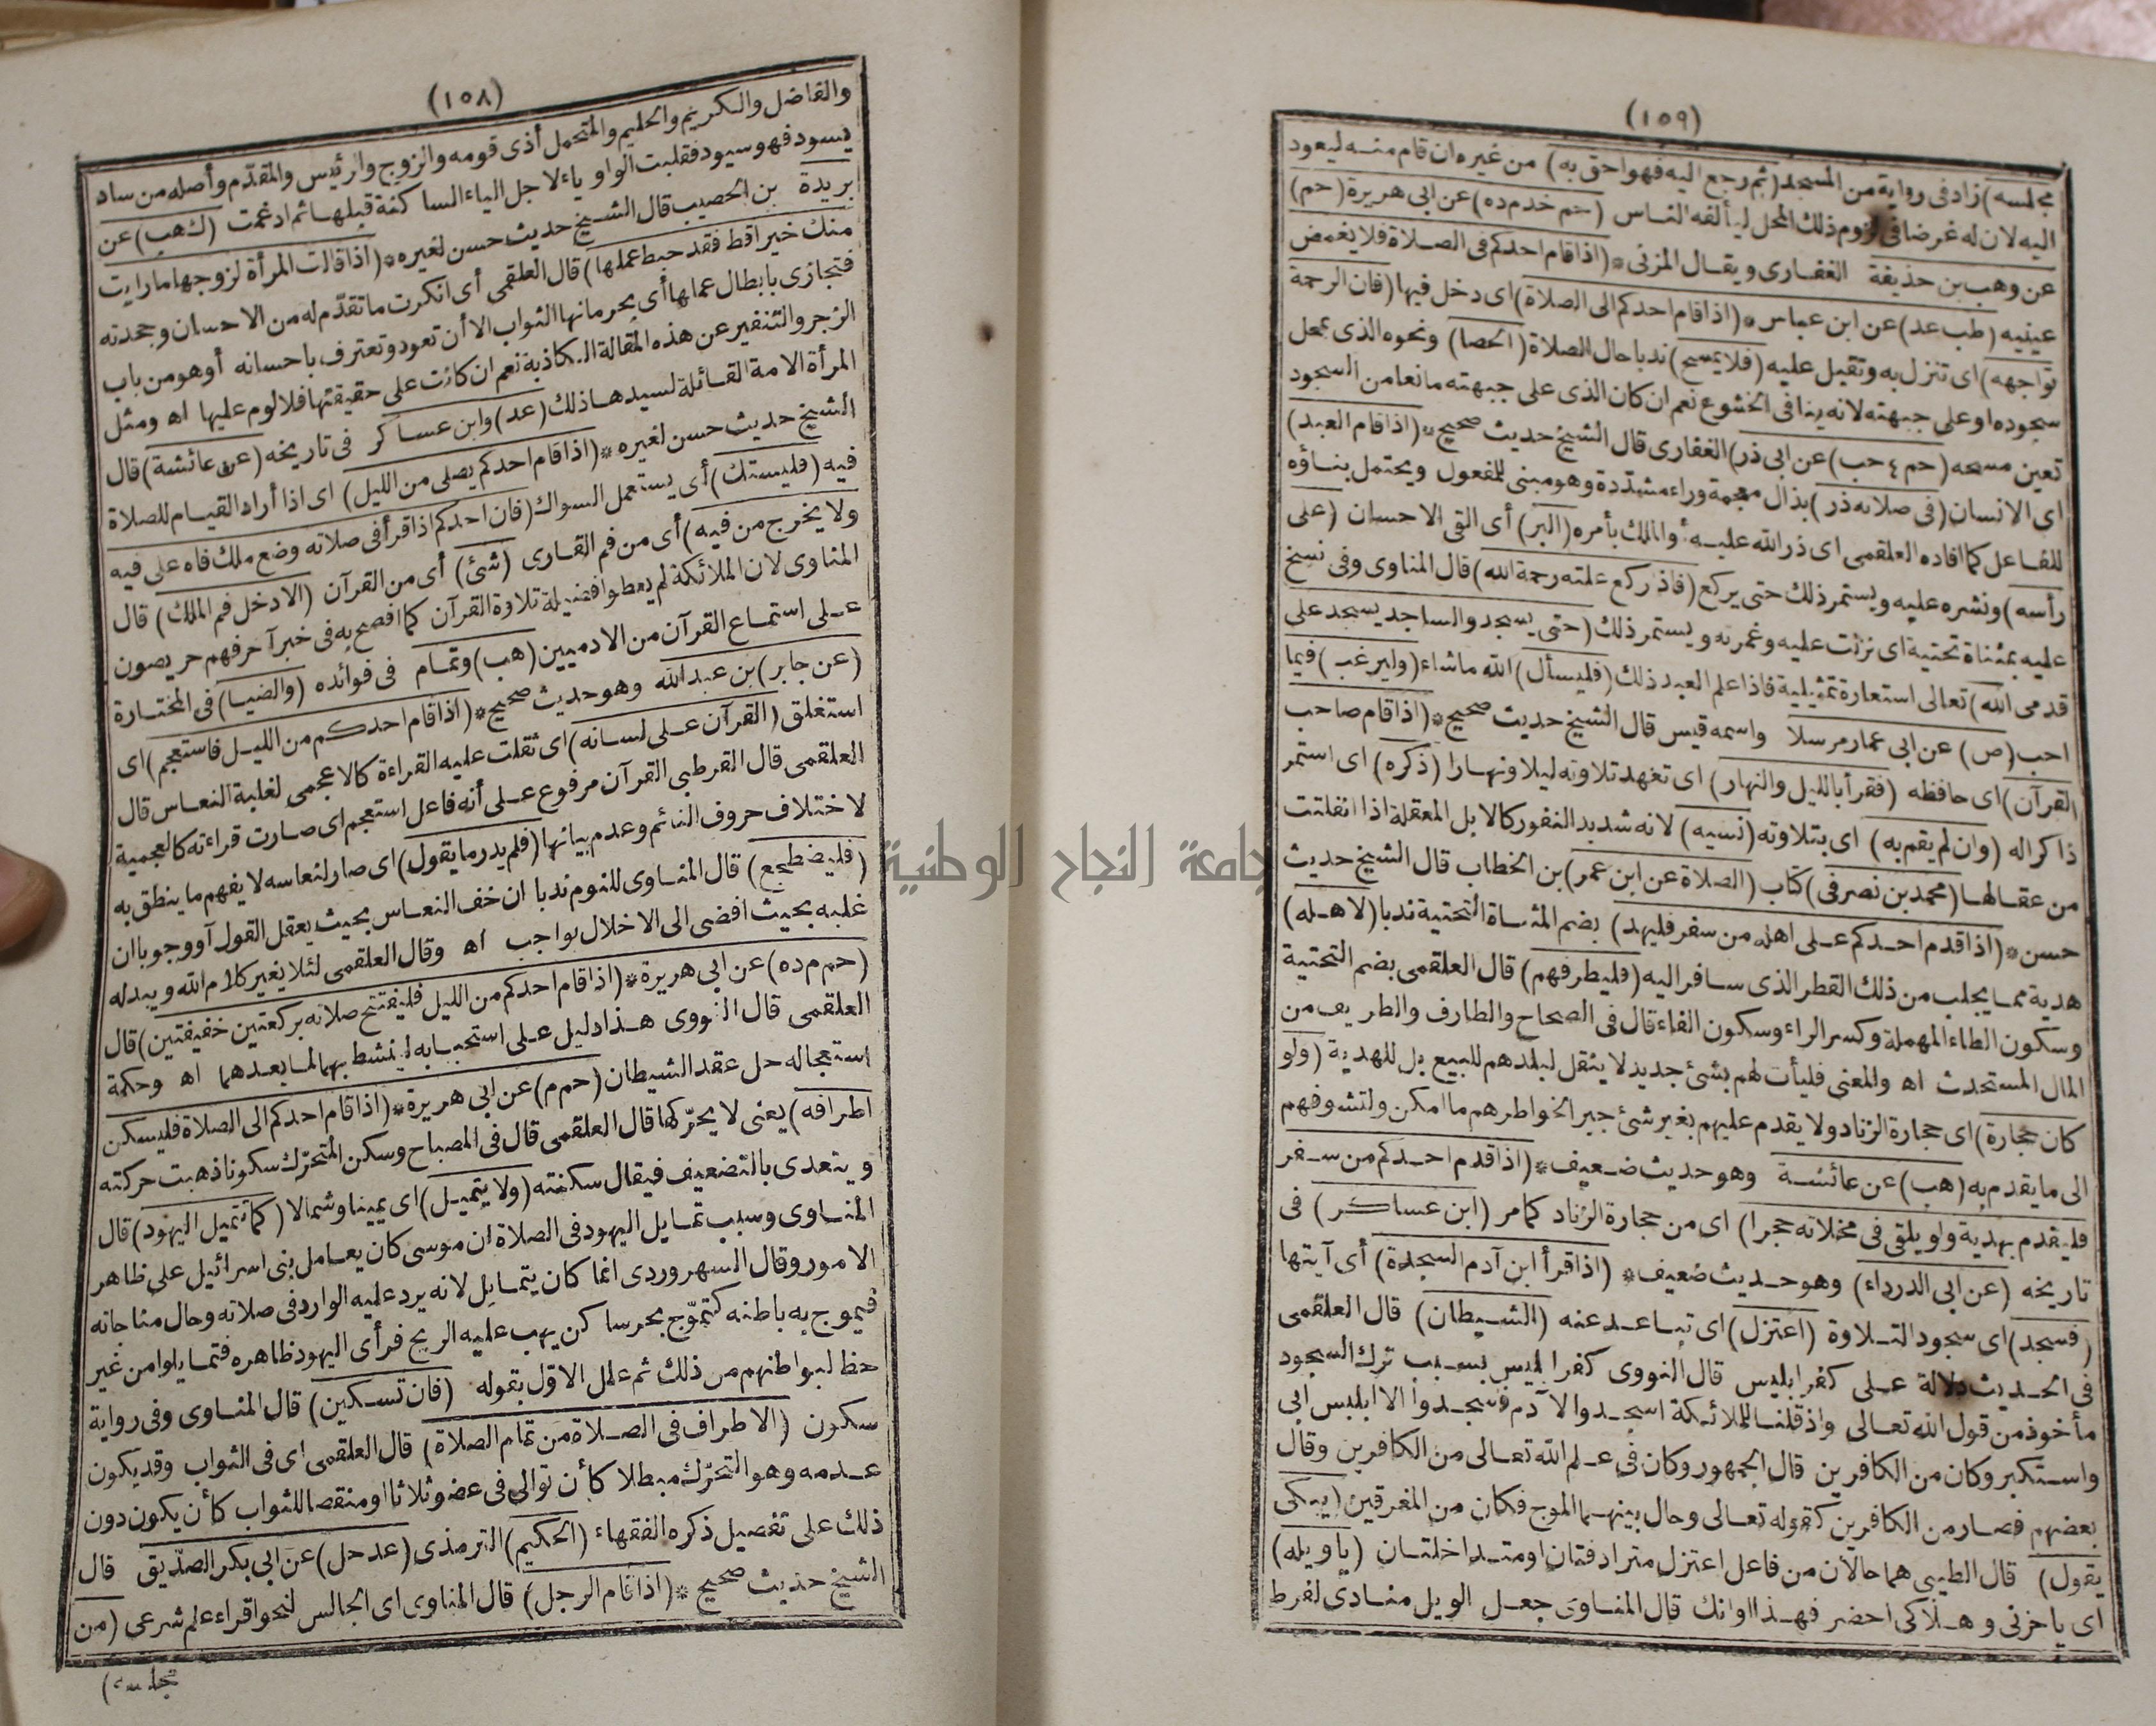 (١٠٨)
والفاضل والكريم والحليم والمتحمل أذى قومه والزوج والرئيس والمقدّم وأصله من ساد
يسود فهو سيود فقلبت الواو ياء لاجل الياء الساكنة قبلها ثم ادغمت (ك هب) عن
بريدة بن الحصيب قال الشيخ حديث حسن لغيره * (اذا قالت المرأة لزوجها ما رايت
منك خيرا قط فقد حبط عملها) قال العلقمى أى انكرت ما تقدّم له من الاحسان وجحدته
فتجازى بابطال عملها أى بحرمانها الثواب الا أن تعود وتعترف باحسانه أو هو من باب
الزجر والتنفير عن هذه المقالة الكاذبة نعم ان كانت على حقيقتها فلا لوم عليها اه ومثل
المرأة الامة القائلة لسيدها ذلك (عد) وابن عساكر فى تاريخه (عن عائشة) قال
الشيخ حديث حسن لغيره * (اذا قام احدكم يصلى من الليل) اى اذا أراد القيام للصلاة
فيه (فليستك) أى يستعمل السواك (فان احدكم اذا قرأ فى صلاته وضع ملك فاه على فيه
ولا يخرج من فيه) أى من فم القارى (شئ) أى من القرآن (الا دخل فم الملك) قال
المناوى لان الملائكة لم يعطوا فضيلة تلاوة القرآن كما افصح به فى خبر آخر فهم حريصون
على استماع القرآن من الادميين (هب) وتمام فى فوائده (والضيا) فى المختارة
(عن جابر) بن عبد الله وهو حديث صحيح * (اذا قام احدكم من الليل فاستعجم) اى
استغلق (القرآن على لسانه) اى ثقلت عليه القراءة كالاعجمى لغلبة النعاس قال
العلقمى قال القرطبى القرآن مرفوع على أنه فاعل استعجم اى صارت قراءته كالعجمية
لاختلاف حروف النائم وعدم بيانها (فلم يدر ما يقول) اى صار لنعاسه لا يفهم ما ينطق به
(فليضطجع) قال المناوى للنوم ندبا ان خف النعاس بحيث يعقل القول أو وجوبا ان
غلبه بحيث افضى الى الاخلال بواجب اه وقال العلقمى لئلا يغير كلام الله ويبدله
(حم م د ه) عن ابى هريرة * (اذا قام احدكم من الليل فليفتتح صلاته بركعتين خفيفتين) قال
العلقمى قال النووى هذا دليل على استحبابه لينشط بهما لما بعدهما اه وحكمة
استعجاله حل عقد الشيطان (حم م) عن ابى هريرة * (اذا قام احدكم الى الصلاة فليسكن
اطرافه) يعنى لا يحرّكها قال العلقمى قال فى المصباح وسكن المتحرّك سكونا ذهبت حركته
ويتعدى بالتضعيف فيقال سكنته (ولا يتميل) اى يمينا وشمالا (كما تتميل اليهود) قال
المناوى وسبب تمايل اليهود فى الصلاة ان موسى كان يعامل بنى اسرائيل على ظاهر
الامور وقال السهروردى انما كان يتمايل لانه يرد عليه الوارد فى صلاته وحال مناجاته
فيموج به باطنه كتموّج بحر ساكن يهب عليه الريح فرأى اليهود ظاهره فتمايلوا من غير
حظ لبواطنهم من ذلك ثم علل الاوّل بقوله (فان تسكين) قال المناوى وفى رواية
سكون (الاطراف فى الصلاة من تمام الصلاة) قال العلقمى اى فى الثواب وقد يكون
عدمه وهو التحرّك مبطلا كأن توالى فى عضو ثلاثا او منقصا للثواب كأن يكون دون
ذلك على تفصيل ذكره الفقهاء (الحكيم) الترمذى (عد حل) عن ابى بكر الصدّيق قال
الشيخ حديث صحيح * (اذا قام الرجل) قال المناوى اى الجالس لنحو اقراء علم شرعى (من
مجلسه)
(١٥٩)
مجلسه) زاد فى رواية من المسجد (ثم رجع اليه فهو احق به) من غيره ان قام منه ليعود
اليه لان له غرضا فى لزوم ذلك المحل ليألفه الناس (حم خد م د ه) عن ابى هريرة (حم)
عن وهب بن حذيفة الغفارى ويقال المزنى * (اذا قام احدكم فى الصلاة فلا يغمض
عينيه (طب عد) عن ابن عباس * (اذا قام احدكم الى الصلاة) اى دخل فيها (فان الرحمة
تواجهه) اى تنزل به وتقبل عليه (فلا يمسح) ندبا حال الصلاة (الحصا) ونحوه الذى بمحل
سجوده او على جبهته لانه ينافى الخشوع نعم ان كان الذى على جبهته مانعا من السجود
تعين مسحه (حم ٤ حب) عن ابى ذر) الغفارى قال الشيخ حديث صحيح * (اذا قام العبد)
اى الانسان (فى صلاته ذر) بذال معجمة وراء مشدّدة وهو مبنى للمفعول ويحتمل بناؤه
للفاعل كما افاده العلقمى اى ذر الله عليه أو الملك بأمره (البر) أى القى الاحسان (على
رأسه) ونشره عليه ويستمر ذلك حتى يركع (فاذا ركع علته رحمة الله) قال المناوى وفى نسخ
عليه بمثناة تحتية اى نزلت عليه وغمرته ويستمر ذلك (حتى يسجد والساجد يسجد على
قدمى الله) تعالى استعارة تمثيلية فاذا علم العبد ذلك (فليسأل) الله ما شاء (وليرغب) فيما
احب (ص) عن ابى عمار مرسلا واسمه قيس قال الشيخ حديث صحيح * (اذا قام صاحب
القرآن) اى حافظه (فقرأ بالليل والنهار) اى تعهد تلاوته ليلا ونهارا (ذكره) اى استمر
ذاكرا له (وان لم يقم به) اى بتلاوته (نسيه) لانه شديد النفور كالابل المعقلة اذا انفلتت
من عقالها (محمد بن نصر فى) كتاب (الصلاة عن ابن عمر) بن الخطاب قال الشيخ حديث
حسن * (اذا قدم احدكم على اهله من سفر فليهد) بضم المثناة التحتية ندبا (لاهله)
هدية مما يجلب من ذلك القطر الذى سافر اليه (فليطرفهم) قال العلقمى بضم التحتية
وسكون الطاء المهملة وكسر الراء وسكون الفاء قال فى الصحاح والطارف والطريف من
المال المستحدث اه والمعنى فليأت لهم بشئ جديد لا ينقل لبلدهم للبيع بل للهدية (ولو
كان حجارة) اى حجارة الزناد ولا يقدم عليهم بغير شئ جبرا لخواطرهم ما امكن ولتشوفهم
الى ما يقدم به (هب) عن عائشة وهو حديث ضعيف * (اذا قدم احدكم من سفر
فليقدم بهدية ولو يلقى فى مخلاته حجرا) اى من حجارة الزناد كما مر (ابن عساكر) فى
تاريخه (عن ابى الدرداء) وهو حديث ضعيف * (اذا قرأ ابن آدم السجدة) أى آيتها
(فسجد) اى سجود التلاوة (اعتزل) اى تباعد عنه (الشيطان) قال العلقمى
فى الحديث دلالة على كفر ابليس قال النووى كفر ابليس بسبب ترك السجود
مأخوذ من قول الله تعالى واذ قلنا للملائكة اسجدوا لآدم فسجدوا الا ابليس ابى
واستكبر وكان من الكافرين قال الجمهور وكان فى علم الله تعالى من الكافرين وقال
بعضهم فصار من الكافرين كقوله تعالى وحال بينهما الموج فكان من المغرقين (يبكى
يقول) قال الطيبى هما حالان من فاعل اعتزل مترادفتان او متداخلتان (يا ويله)
اى يا حزنى وهلاكى احضر فهذا اوانك قال المناوى جعل الويل منادى لفرط
جامعة النجاح الوطنية